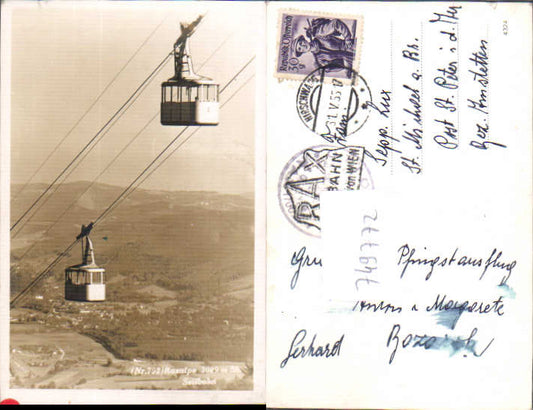 (Nr.702) Raxalpe 2009 m SH.
Seilbahn
4324
Republik Österreich
HIRSCHWANG
31.V.55
RAX
BAHN
von WIEN
Fam.
Sepp Lux
St. Michael a. Br.
Post St. Peter i. d. Au
Bez. Amstetten
749772
Pfingstausflug
Anton u Margarete
Gerhard